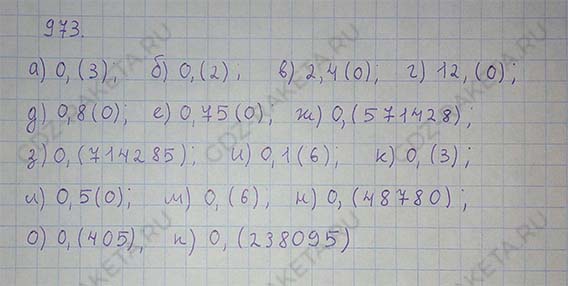 973.
а) 0,(3); б) 0,(2); в) 2,4(0); г) 12,(0);
д) 0,8(0); е) 0,75(0); ж) 0,(571428);
з) 0,(714285); и) 0,1(6); к) 0,(3);
л) 0,5(0); м) 0,(6); н) 0,(48780);
о) 0,(405), п) 0,(238095)